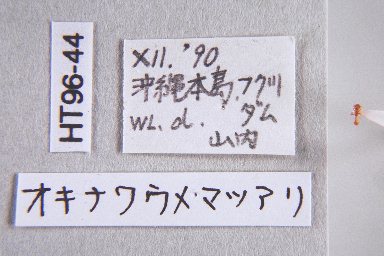 HT96-44
XII. '90
沖縄本島, フクジ
W.L. d. ダム
山内
オキナワウメマツアリ